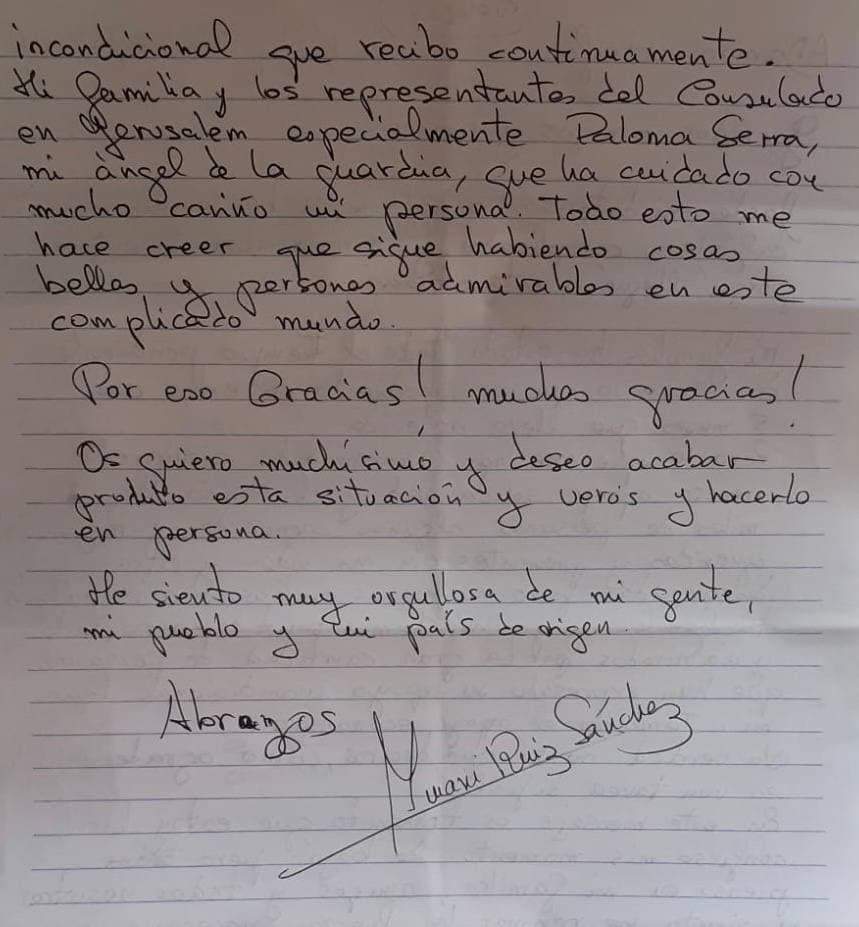 incondicional que recibo continuamente.
Mi familia y los representantes del Consulado
en Jerusalem especialmente Paloma Serra,
mi àngel de la guardia, que ha cuidado con
mucho cariño mi persona. Todo esto me
hace creer que sigue habiendo cosas
bellas y personas admirables en este
complicado mundo.
Por eso Gracias! muchas gracias!
Os quiero muchísimo y deseo acabar
produto esta situación y veros y hacerlo
en persona.
Me siento muy orgullosa de mi gente,
mi pueblo y mi país de origen.
Abrazos
Juani Ruiz Sánchez